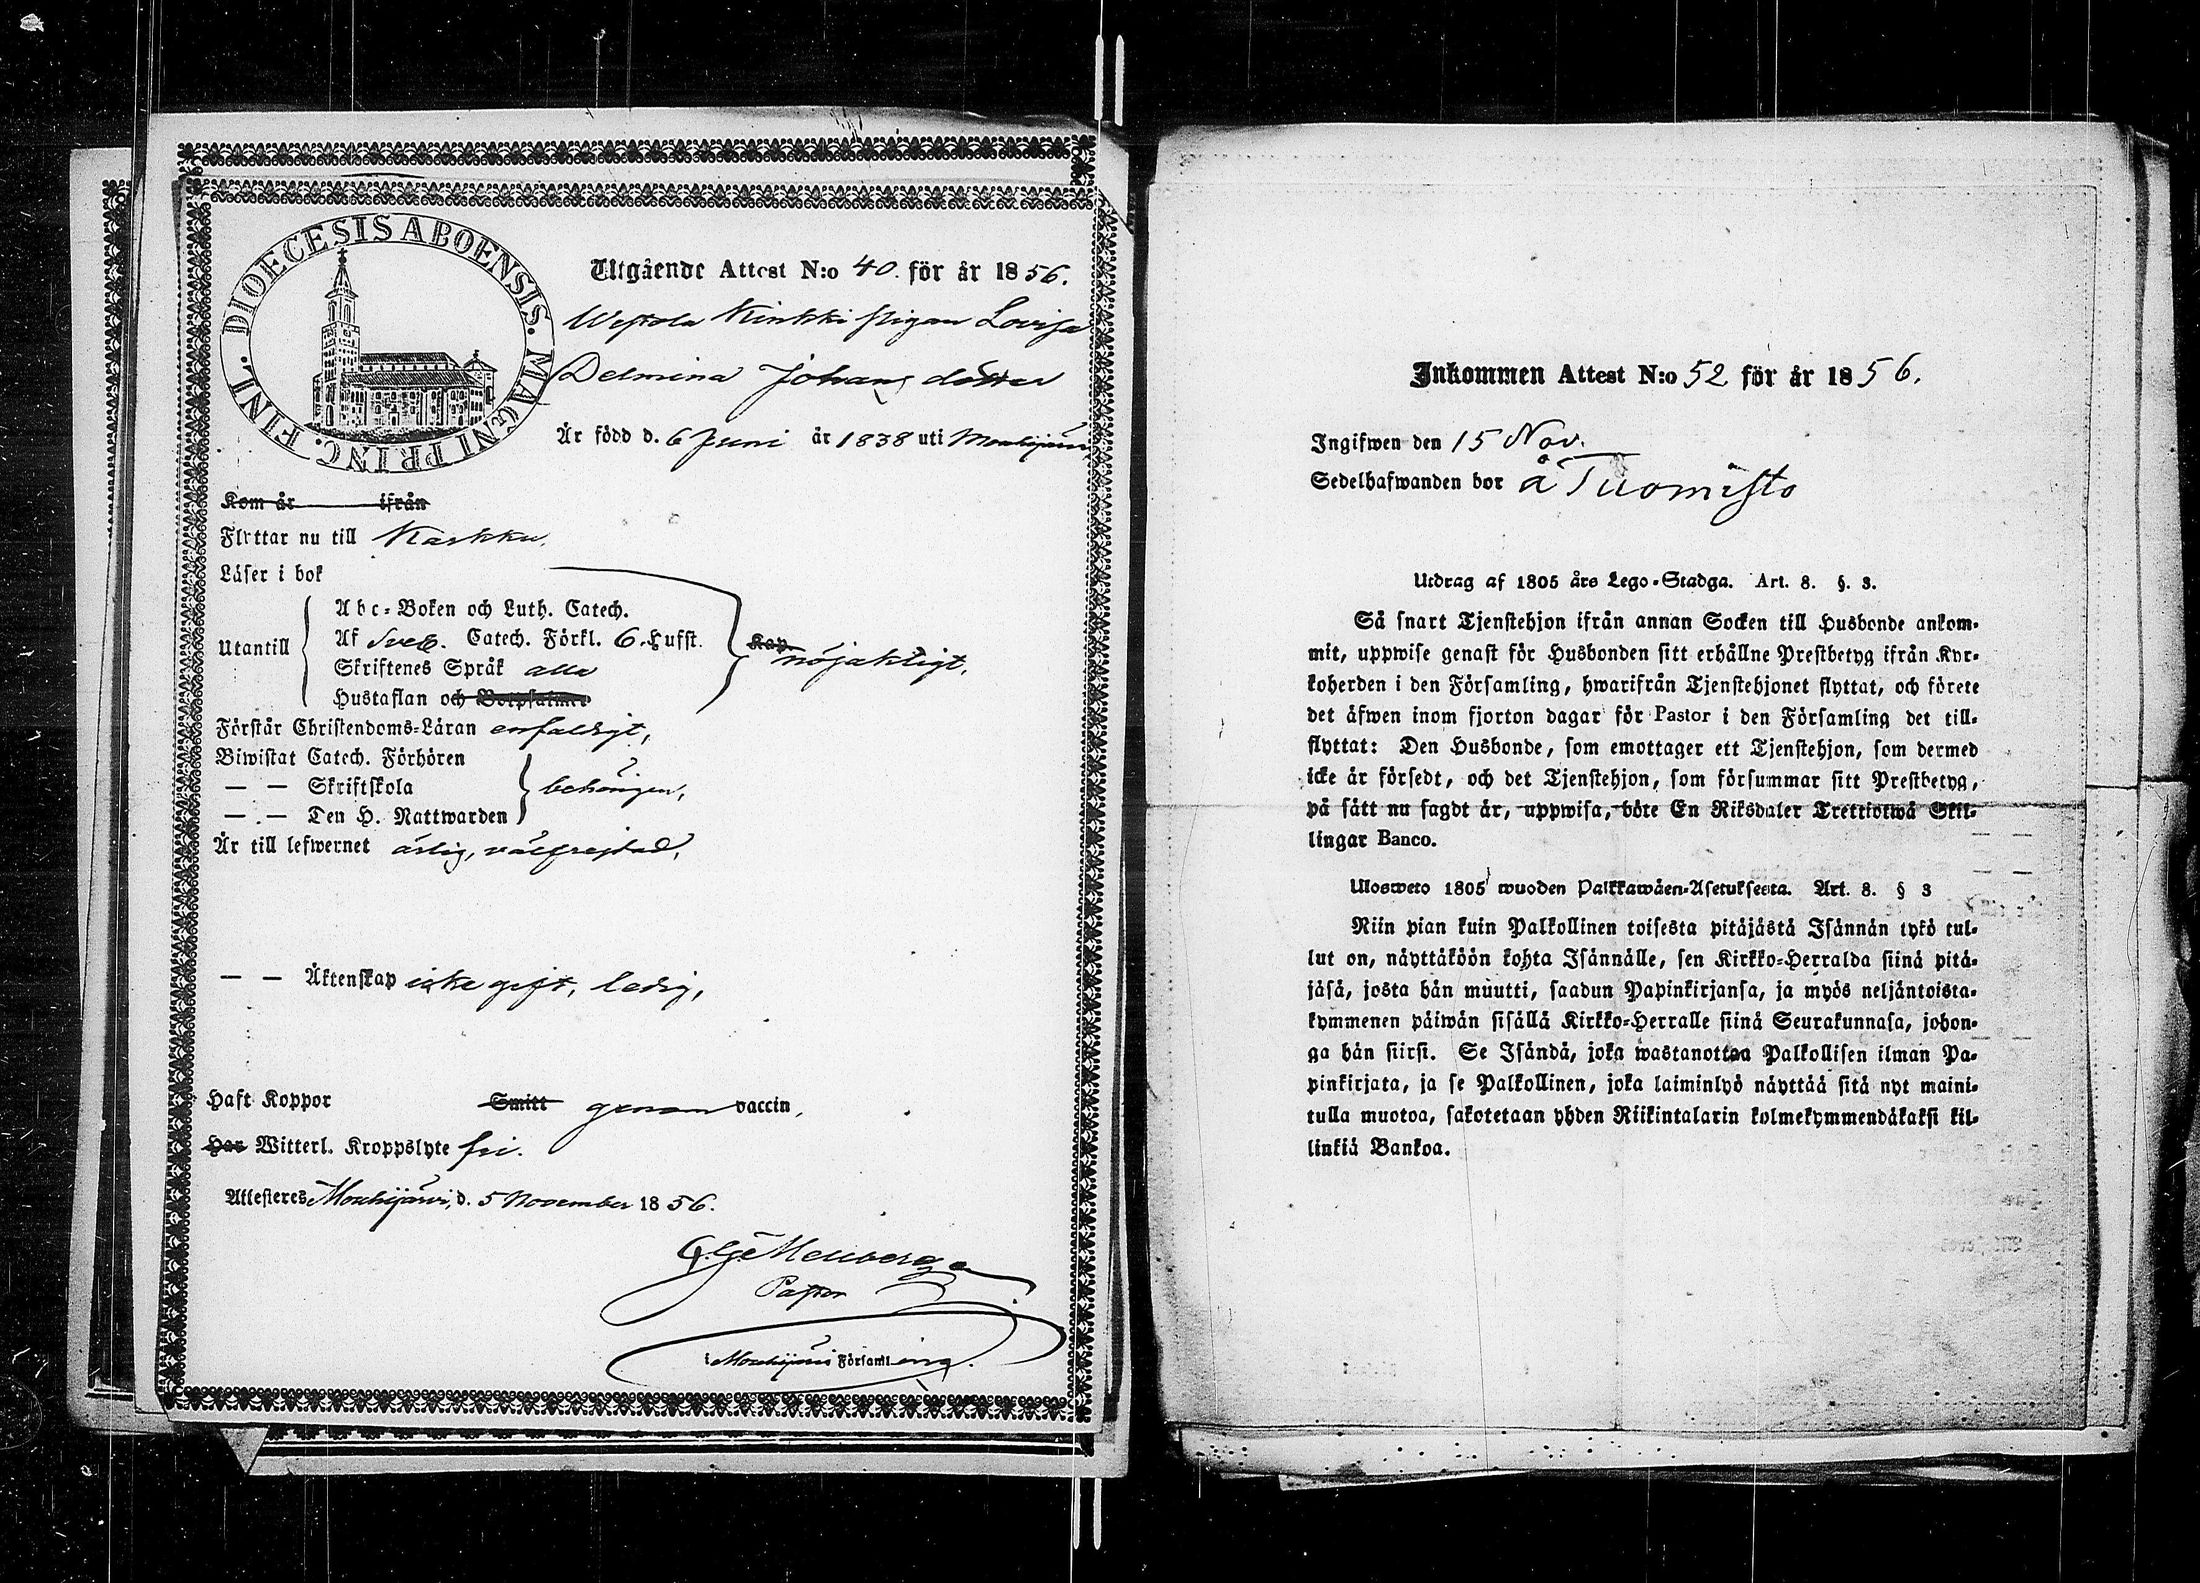 DIOECESIS ABOENSIS. MAGNI PRINC. FINL.
Utgående Attest N:o 40. för år 1856.
Westola Kinkki pigan Lovisa
Delmina Johans dotter
Är född d. 6 Juni år 1838 uti Mouhijärvi
Kom år ifrån
Flyttar nu till Karkku.
Läser i bok
Utantill
Abc-Boken och Luth. Catech.
Af Sveb. Catech. Förkl. 6. Hufst.
Skriftenes Språk alla
Hustaflan och Botpsalmer
Kap. nöjaktigt,
Förstår Christendoms-Läran enfaldigt,
Biwistat Catech. Förhören
— — Skriftskola
— — Den H. Nattwarden
behörigen,
Är till lefwernet ärlig, välfrejdad,
— — Äktenskap icke gift, ledig,
Haft Koppor Smitt genom vaccin,
Har Witterl. Kroppslyte fri.
Attesteres Mouhijärvi, d. 5 November 1856.
Mellberg
Pastor
i Mouhijärvi Församling.
Inkommen Attest N:o 52 för år 1856.
Ingifwen den 15 Nov.
Sedelhafwanden bor å Tuomisto
Utdrag af 1805 års Lego-Stadga. Art. 8. §. 3.
Så snart Tjenstehjon ifrån annan Socken till Husbonde ankom-
mit, uppwise genast för Husbonden sitt erhållne Prestbetyg ifrån Kyr-
koherden i den Församling, hwarifrån Tjenstehjonet flyttat, och förete
det äfwen inom fjorton dagar för Pastor i den Församling det till-
flyttat: Den Husbonde, som emottager ett Tjenstehjon, som dermed
icke är försedt, och det Tjenstehjon, som försummar sitt Prestbetyg,
på sätt nu sagdt är, uppwisa, böte En Riksdaler Trettiotwå Skil-
lingar Banco.
Ulosweto 1805 wuoden Palkkawäen-Asetuksesta. Art. 8. § 3
Niin pian kuin Palkollinen toisesta pitäjästä Isännän tykö tul-
lut on, näyttäköön kohta Isännälle, sen Kirkko-Herralda siinä pitä-
jäsä, josta hän muutti, saadun Papinkirjansa, ja myös neljäntoista-
kymmenen päiwän sisällä Kirkko-Herralle siinä Seurakunnasa, johon-
ga hän siirsi. Se Isändä, joka wastanottaa Palkollisen ilman Pa-
pinkirjata, ja se Palkollinen, joka laiminlyö näyttää sitä nyt maini-
tulla muotoa, sakotetaan yhden Riikintalarin kolmekymmendäkaksi kil-
linkiä Bankoa.